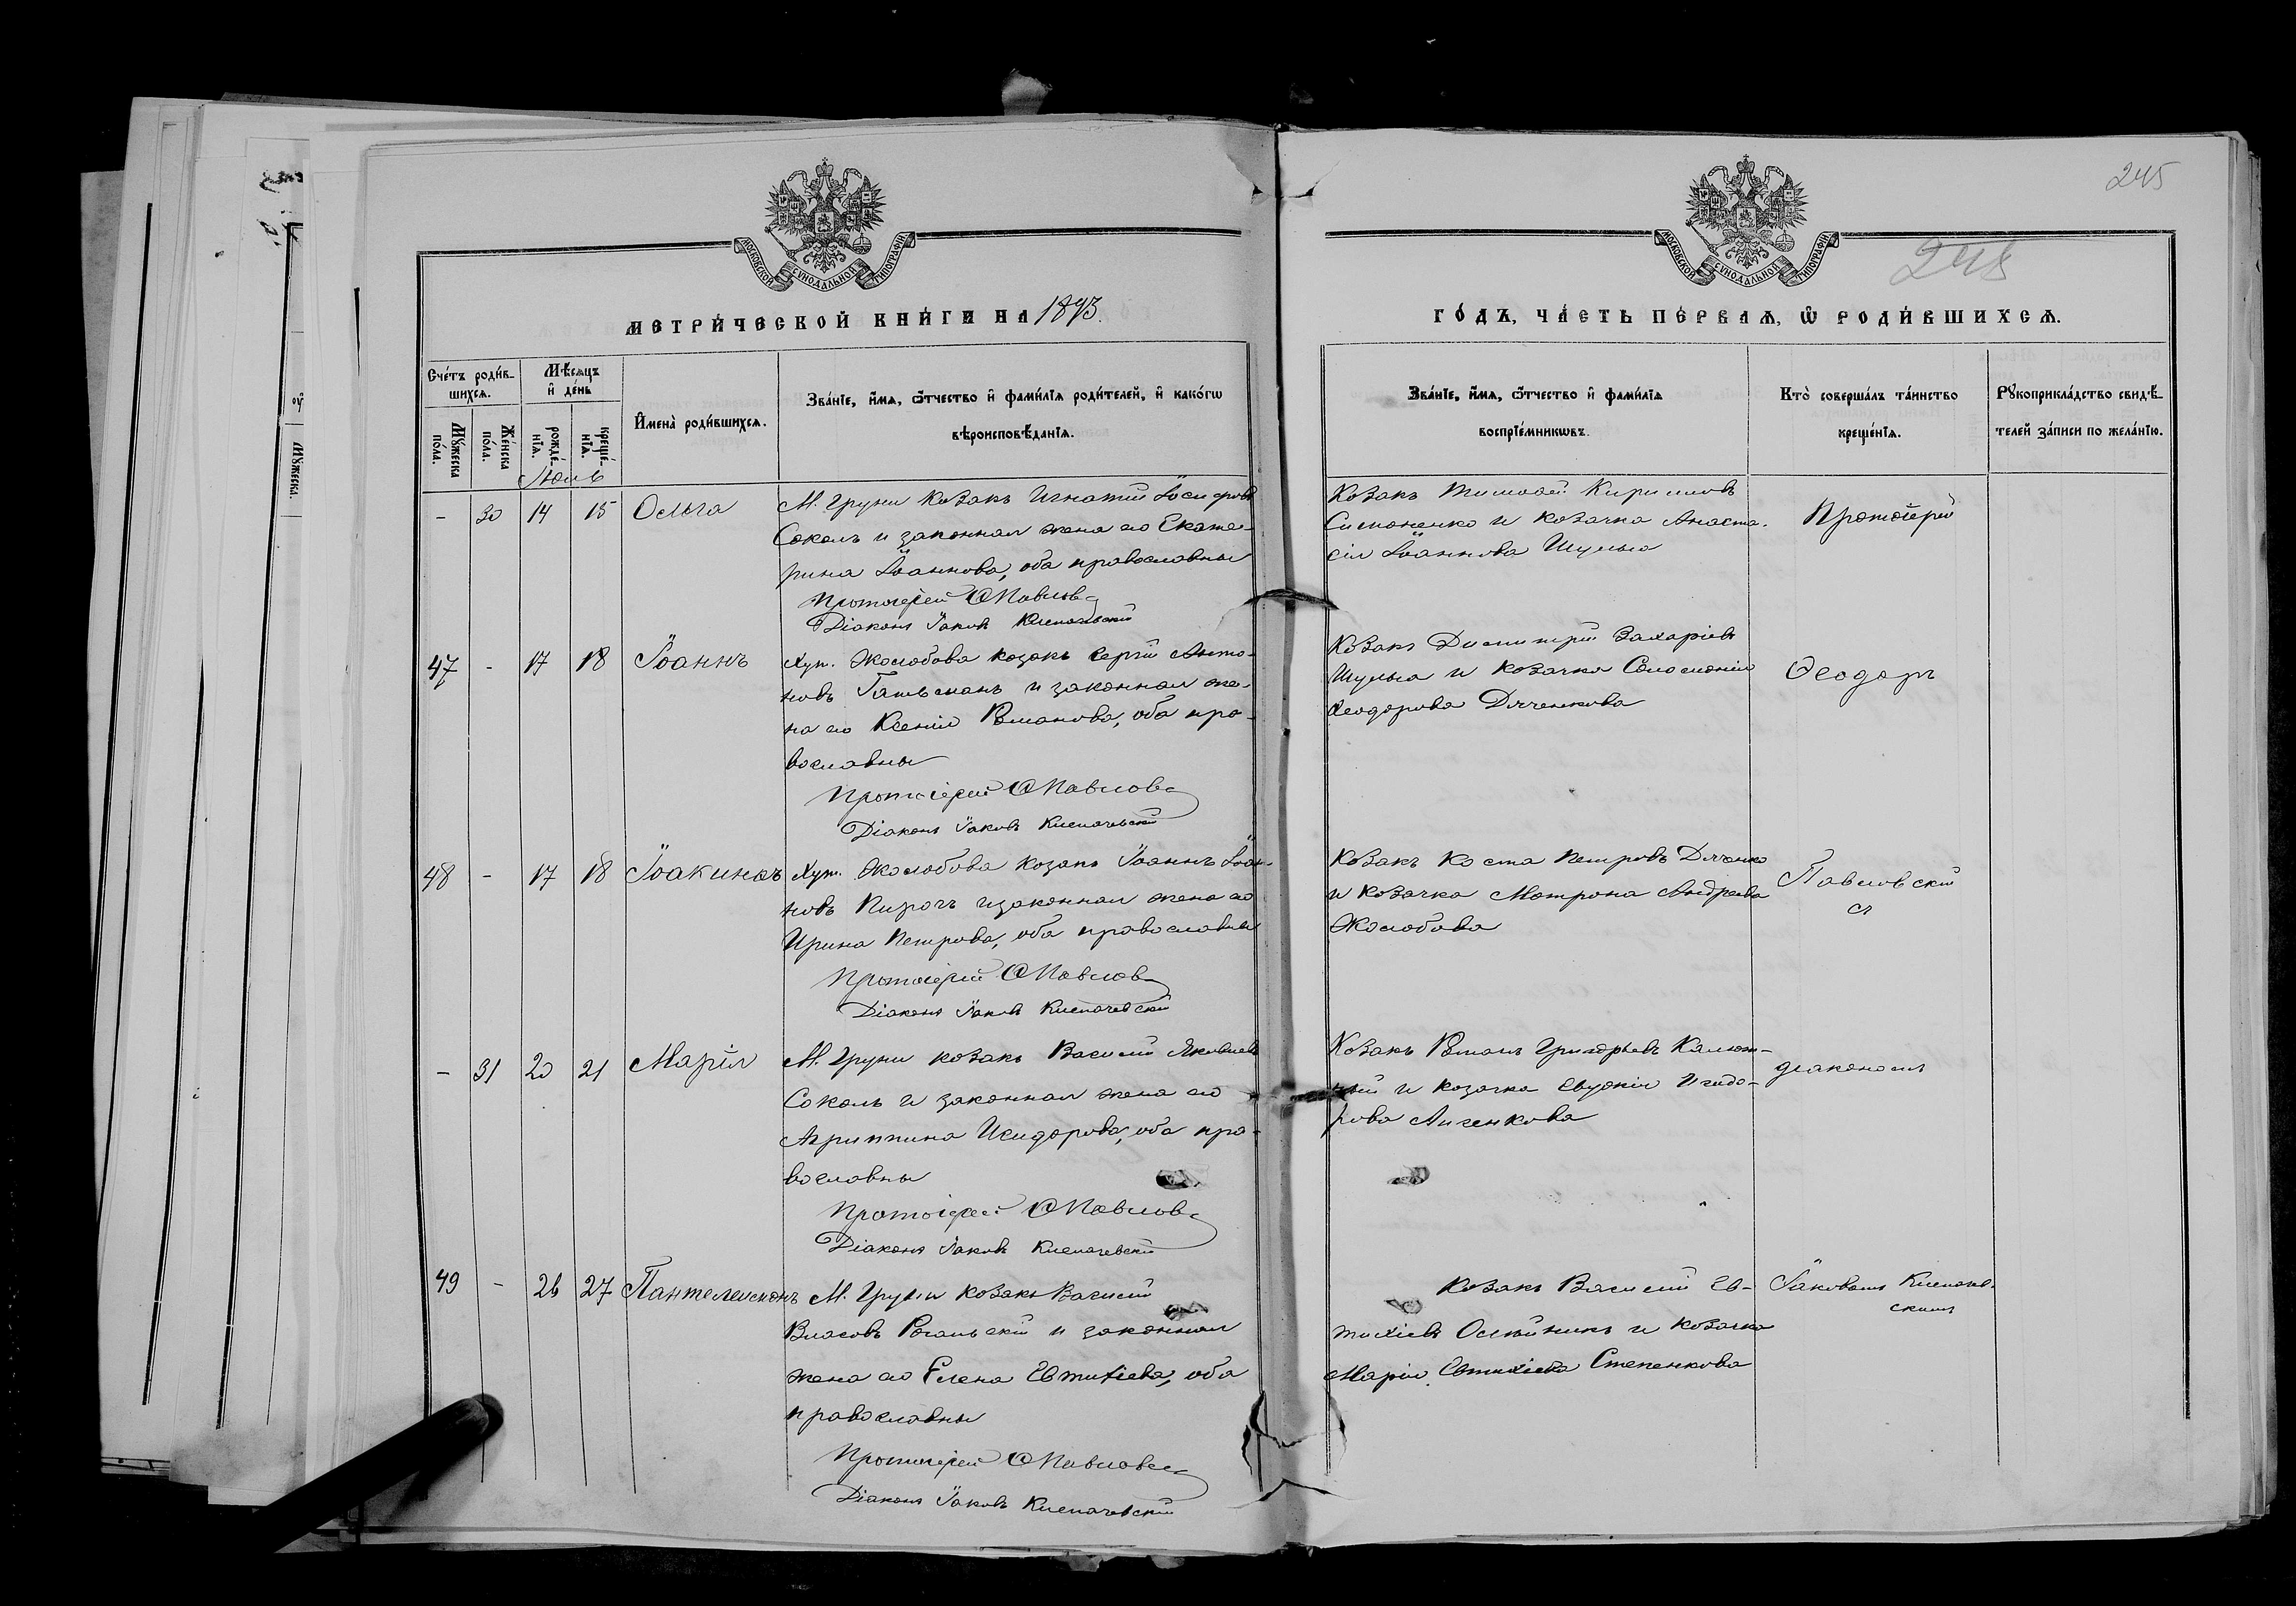 245
245
МОСКОВСКОЙ СУНОДАЛЬНОЙ ТИПОГРАФІИ
МОСКОВСКОЙ СУНОДАЛЬНОЙ ТИПОГРАФІИ
МЕТРИ́ЧЕСКОЙ КНИ́ГИ НА 1893.
ГО́ДЪ, ЧА́СТЬ ПЕ́РВАѦ, Ѽ РОДИ́ВШИХСѦ.
Сче́тъ роди́в-
шихсѧ.
Мꙋ́жеска
по́ла.
Же́нска
по́ла.
Мѣ́сѧцъ
и҆ де́нь
рожде́-
нїѧ.
креще́-
нїѧ.
И҆мена̀ роди́вшихсѧ.
Зва́нїе, и҆́мѧ, ѻ҆́тчество и҆ фами́лїѧ роди́телей, и҆ како́гѡ
вѣроисповѣ́данїѧ.
Зва́нїе, и҆́мѧ, ѻ҆́тчество и҆ фами́лїѧ
воспрїе́мникѡвъ.
Кто̀ соверша́лъ та́инство
креще́нїѧ.
Рꙋкоприкла́дство свидѣ́-
телей за́писи по жела́нїю.
Мꙋжеска.
Июль
- 30 14 15 Ольга
М. Груни козакъ Игнатій Іосифовъ
Соколъ и законная жена его Екате-
рина Іоаннова, оба православны
Протоіерей Ѳ Павловс
Діаконъ Іаковъ Клепачевскій
Козакъ Тимофей Кирилловъ
Симоненко и козачка Анаста-
сія Іоаннова Шульга
Протоіерей
47 - 17 18 Іоаннъ
Хут. Жолобова козакъ Сергій Анто-
новъ Гатьманъ и законная же-
на его Ксенія Романова, оба пра-
вославны
Протоіерей Ѳ Павловс
Діаконъ Іаковъ Клепачевскій
Козакъ Димитрій Захаріевъ
Шульга и козачка Соломонія
Ѳеодорова Дяченкова
Ѳеодоръ
48 - 17 18 Іоакимъ
Хут. Жолобова козакъ Іоаннъ Іоан-
новъ Пирогъ и законная жена его
Ирина Петрова, оба православны
Протоіерей Ѳ Павловс
Діаконъ Іаковъ Клепачевскій
Козакъ Коста Петровъ Дяченко
и козачка Матрона Андреева
Жолобова
Павловскій
съ
- 31 20 21 Марія
М. Груни козакъ Василій Яковлевъ
Соколъ и законная жена его
Агриппина Исидорова, оба пра-
вославны
Протоіерей Ѳ Павловс
Діаконъ Іаковъ Клепачевскій
Козакъ Романъ Григорьевъ
и козачка Евдокія Исидо-
рова
діакономъ
49 - 26 27 Пантелеимонъ
М. Груни козакъ Василій
Власовъ Рогальскій и законная
жена его Елена Евтихіева, оба
православны
Протоіерей Ѳ Павловс
Діаконъ Іаковъ Клепачевскій
Козакъ Василій Ев-
тихіевъ Олейникъ и козачка
Марія Евтихіева Степенкова
Іаковомъ Клепачев-
скимъ